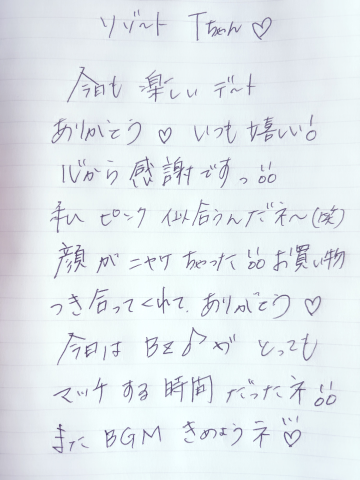 リゾート Tちゃん♡
今日も 楽しい デート
ありがとう♡ いつも 嬉しい!
心から 感謝ですっ!!
私 ピンク 似合うんだネ〜(笑)
顔が ニヤケ ちゃった!! お買い物
つき合ってくれて、ありがとう♡
今日は B'z♪が とっても
マッチする時間だったネ!!
また BGM きめようネ♡